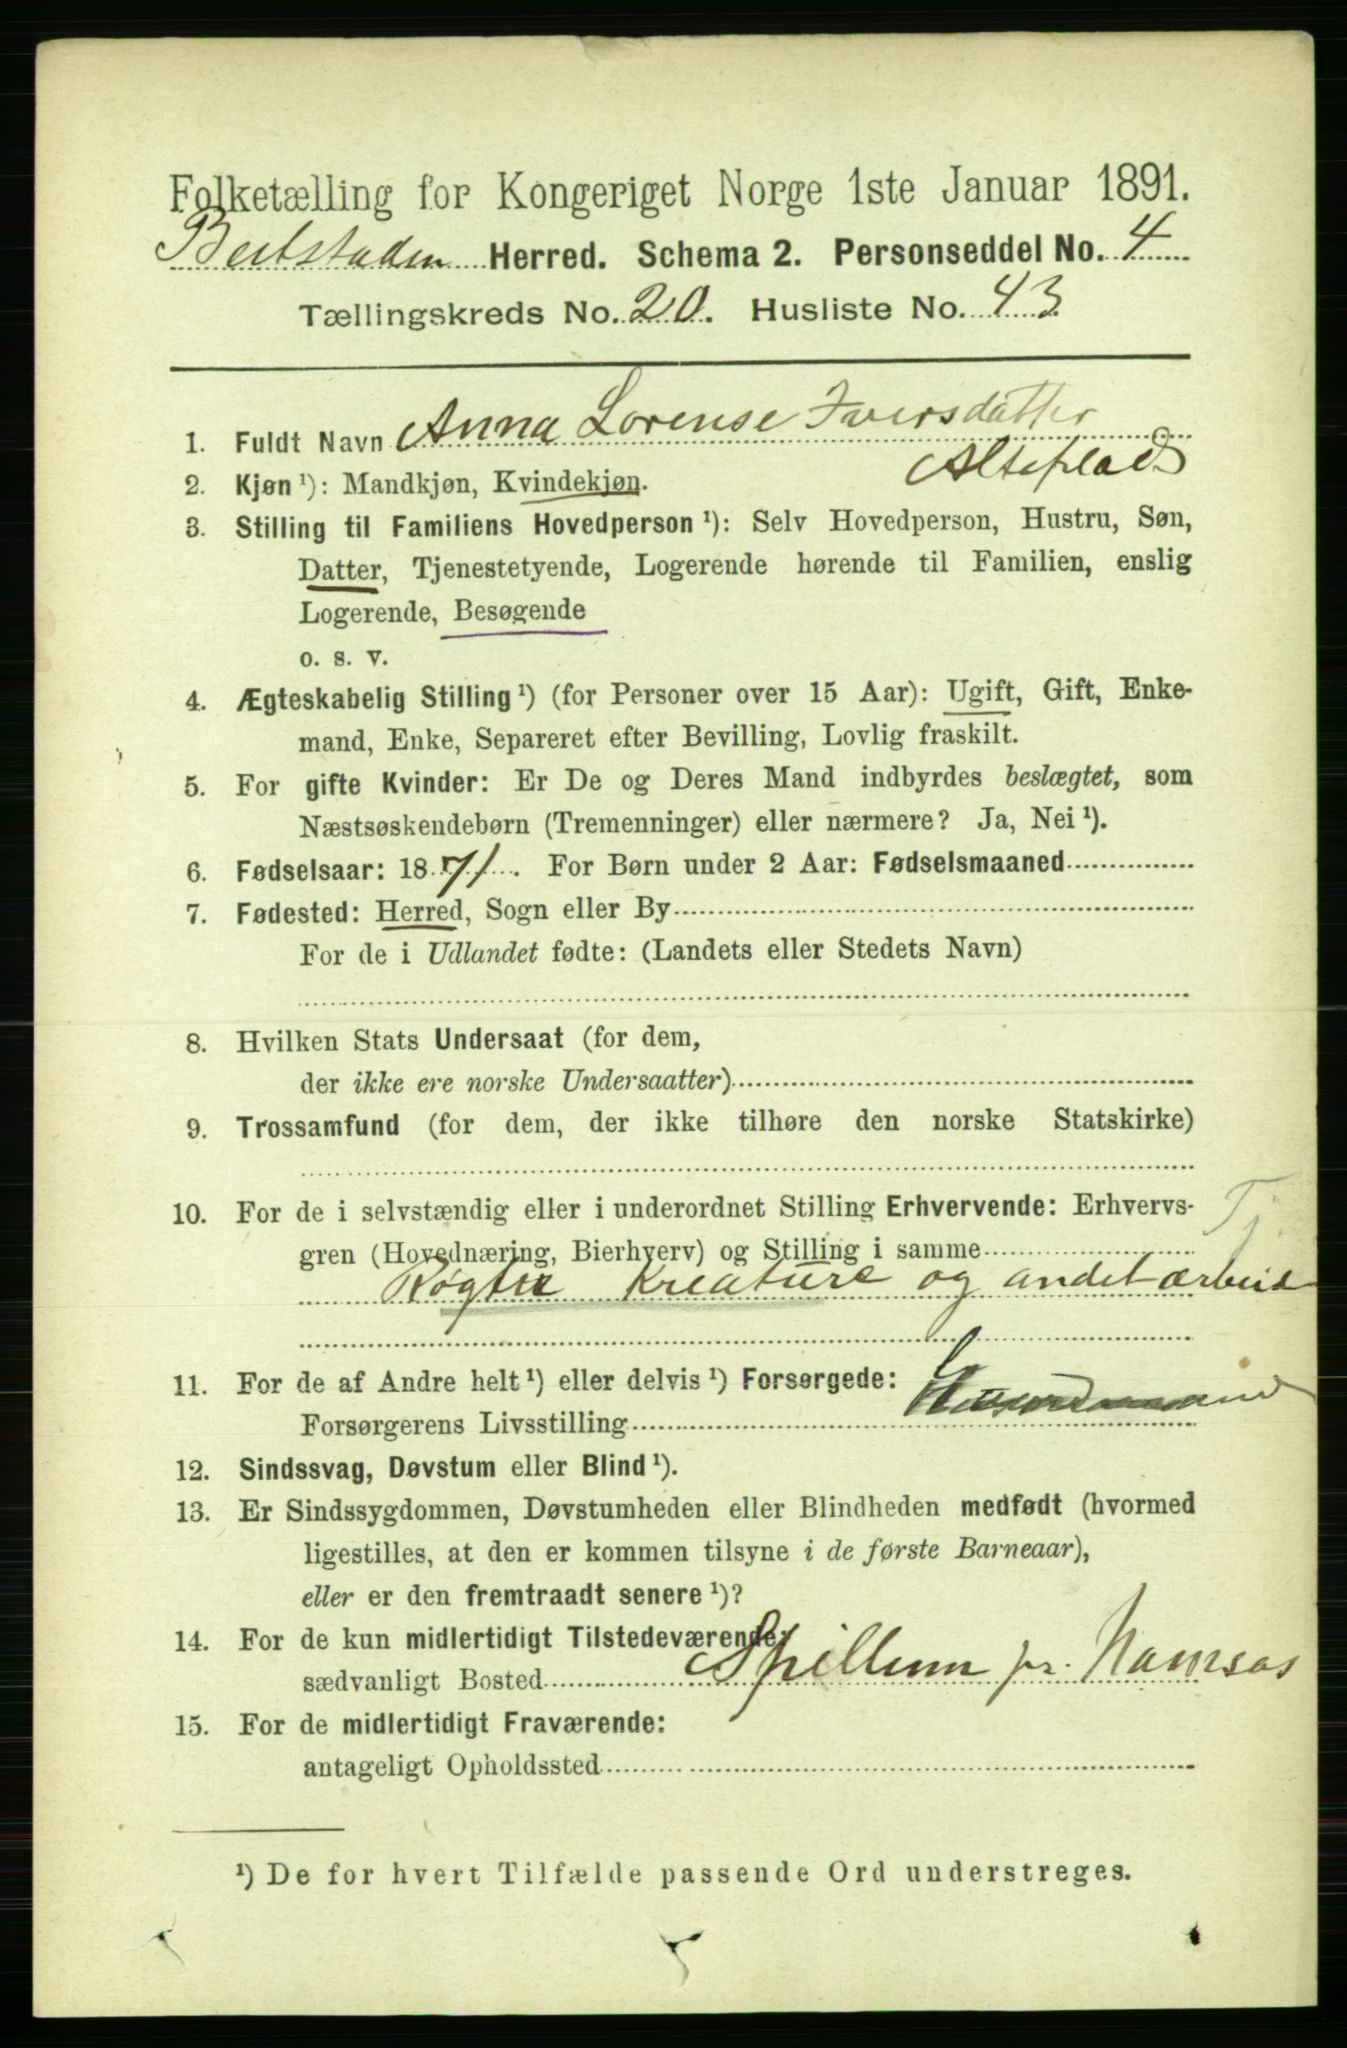 Folketælling for Kongeriget Norge 1ste Januar 1891.
Beitstaden Herred. Schema 2. Personseddel No. 4
Tællingskreds No. 20. Husliste No. 43
1. Fuldt Navn Anna Lorense Iversdatter
2. Kjøn¹): Mandkjøn, Kvindekjøn.
3. Stilling til Familiens Hovedperson¹): Selv Hovedperson, Hustru, Søn,
Datter, Tjenestetyende, Logerende hørende til Familien, enslig
Logerende, Besøgende
o. s. v.
4. Ægteskabelig Stilling¹) (for Personer over 15 Aar): Ugift, Gift, Enke-
mand, Enke, Separeret efter Bevilling, Lovlig fraskilt.
5. For gifte Kvinder: Er De og Deres Mand indbyrdes beslægtet, som
Næstsøskendebørn (Tremenninger) eller nærmere? Ja, Nei¹).
6. Fødselsaar: 1871. For Børn under 2 Aar: Fødselsmaaned
7. Fødested: Herred, Sogn eller By
For de i Udlandet fødte: (Landets eller Stedets Navn)
8. Hvilken Stats Undersaat (for dem,
der ikke ere norske Undersaatter)
9. Trossamfund (for dem, der ikke tilhøre den norske Statskirke)
10. For de i selvstændig eller i underordnet Stilling Erhvervende: Erhvervs-
gren (Hovednæring, Bierhverv) og Stilling i samme
Tj.
Røgter Kreature og andet arbeid
11. For de af Andre helt¹) eller delvis¹) Forsørgede:
Forsørgerens Livsstilling
12. Sindssvag, Døvstum eller Blind¹).
13. Er Sindssygdommen, Døvstumheden eller Blindheden medfødt (hvormed
ligestilles, at den er kommen tilsyne i de første Barneaar),
eller er den fremtraadt senere¹)?
14. For de kun midlertidigt Tilstedeværende:
sædvanligt Bosted Spillum pr. Namsos
15. For de midlertidigt Fraværende:
antageligt Opholdssted
¹) De for hvert Tilfælde passende Ord understreges.